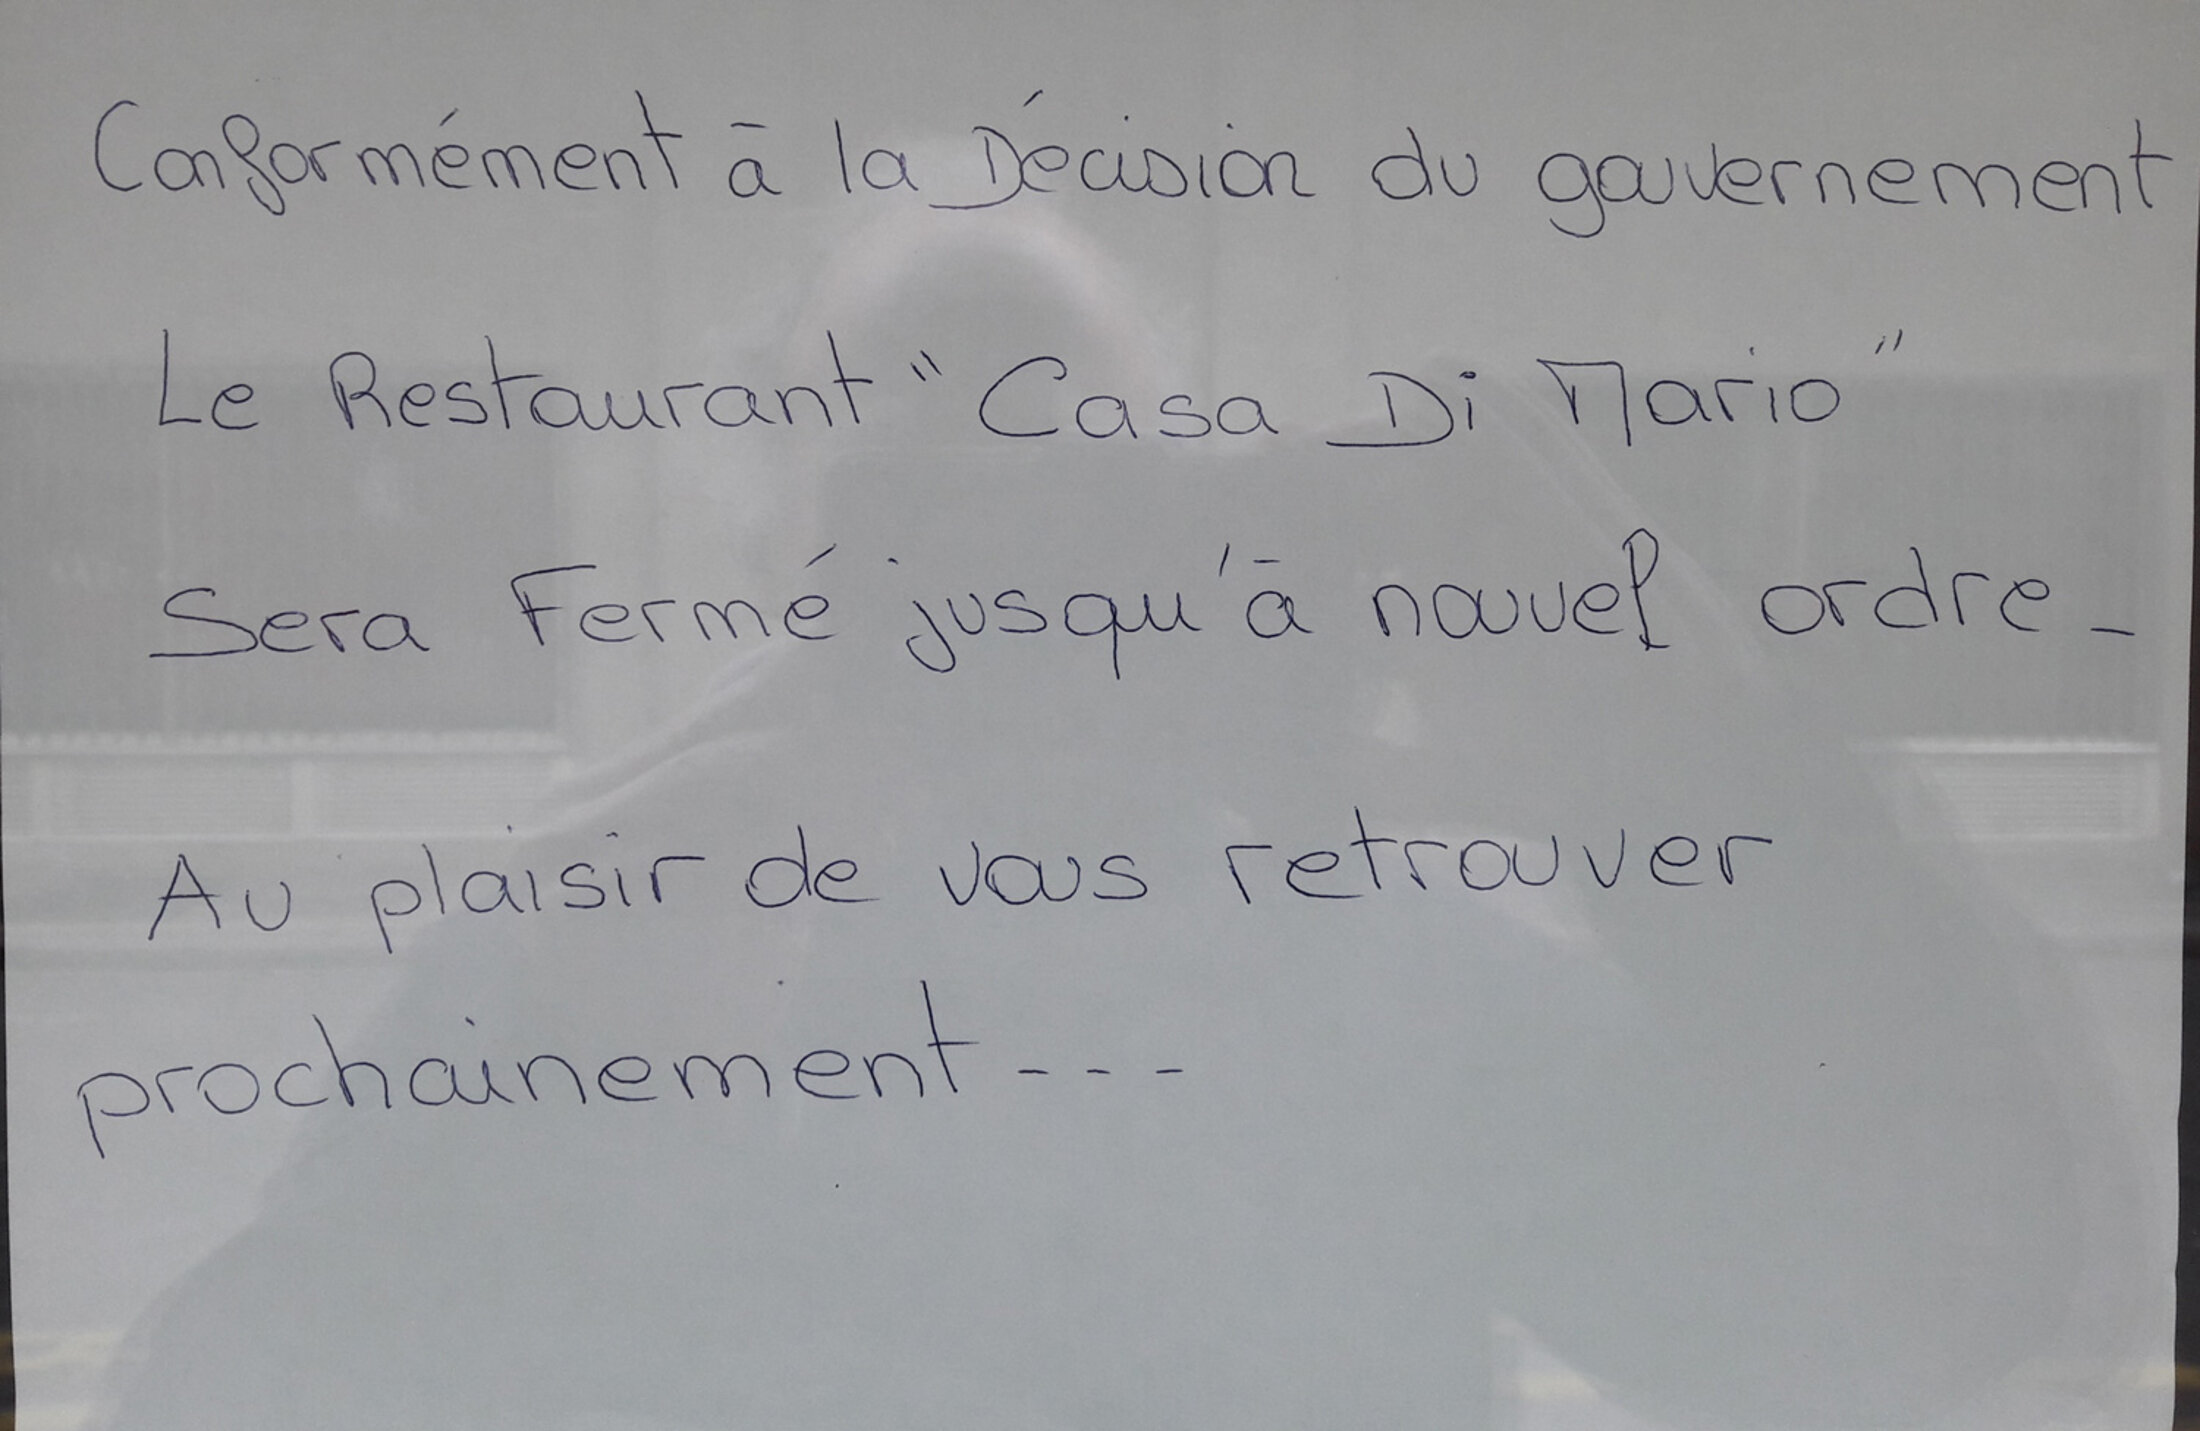 Conformément à la Décision du gouvernement
Le Restaurant "Casa Di Mario"
Sera Fermé jusqu'à nouvel ordre_
Au plaisir de vous retrouver
prochainement ---